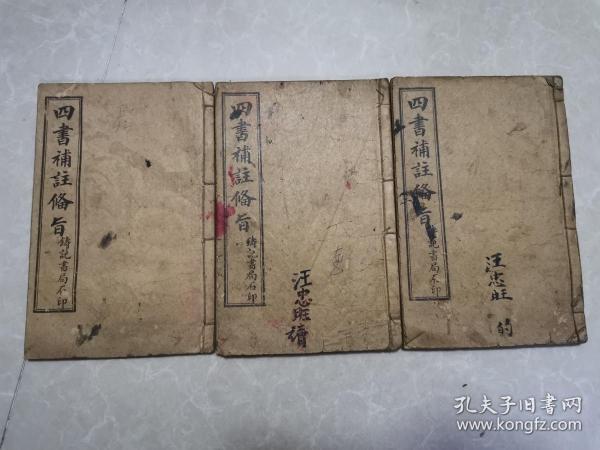 四書補註俻旨
鋳記書局石印
四書補註俻旨
鋳記書局石印
汪忠旺讀
四書補註俻旨
鋳記書局石印
汪忠旺的
孔夫子旧书网
www.kongfz.com